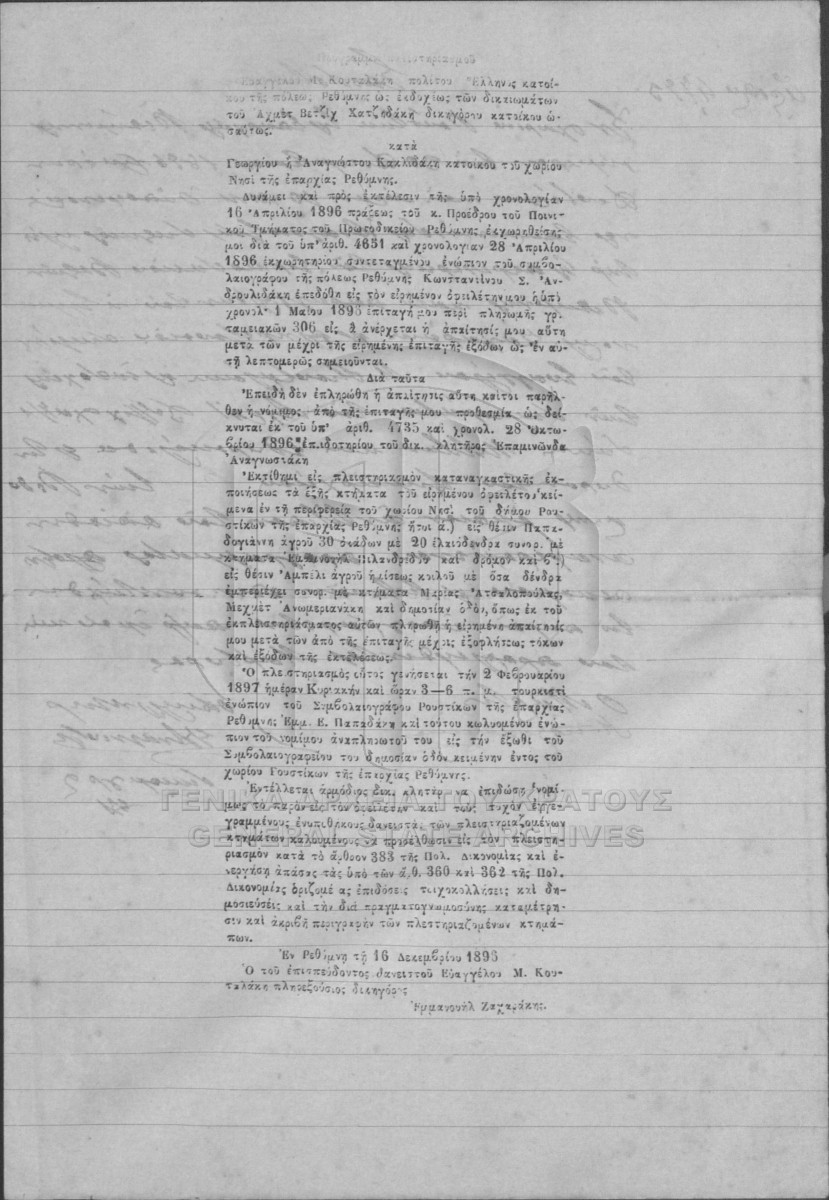 Πρόγραμμα πλειστηριασμοῦ
Εὐαγγέλου Μ. Κουταλάκη πολίτου Ἕλληνος κατοί-
κου τῆς πόλεως Ρεθύμνης ὡς ἐκδοχέως τῶν δικαιωμάτων
τοῦ Ἀχμὲτ Βετζὶχ Χατζηδάκη δικηγόρου κατοίκου ὡ-
σαύτως.
κατὰ
Γεωργίου ἢ Ἀναγνώστου Κακλιδάκη κατοίκου τοῦ χωρίου
Νησὶ τῆς ἐπαρχίας Ρεθύμνης.
Δυνάμει καὶ πρὸς ἐκτέλεσιν τῆς ὑπὸ χρονολογίαν
16 Ἀπριλίου 1896 πράξεως τοῦ κ. Προέδρου τοῦ Ποινι-
κοῦ Τμήματος τοῦ Πρωτοδικείου Ρεθύμνης ἐκχωρηθείσης
μοι διὰ τοῦ ὑπ' ἀριθ. 4651 καὶ χρονολογίαν 28 Ἀπριλίου
1896 ἐκχωρητηρίου συντεταγμένου ἐνώπιον τοῦ συμβο-
λαιογράφου τῆς πόλεως Ρεθύμνης Κωνσταντίνου Σ. Ἀν-
δρουλιδάκη ἐπεδόθη εἰς τὸν εἰρημένον ὀφειλέτην μου ἡ ὑπὸ
χρονολ. 1 Μαΐου 1896 ἐπιταγή μου περὶ πληρωμῆς γρ.
ταμειακῶν 306 εἰς ἃ ἀνέρχεται ἡ ἀπαίτησίς μου αὕτη
μετὰ τῶν μέχρι τῆς εἰρημένης ἐπιταγῆς ἐξόδων ὡς ἐν αὐ-
τῇ λεπτομερῶς σημειοῦνται.
Διὰ ταῦτα
Ἐπειδὴ δὲν ἐπληρώθη ἡ ἀπαίτησις αὕτη καίτοι παρῆλ-
θεν ἡ νόμιμος ἀπὸ τῆς ἐπιταγῆς μου προθεσμία ὡς δεί-
κνυται ἐκ τοῦ ὑπ' ἀριθ. 4735 καὶ χρονολ. 28 Ὀκτω-
βρίου 1896 ἐπιδοτηρίου τοῦ δικ. κλητῆρος Ἐπαμινῶνδα
Ἀναγνωστάκη
Ἐκτίθημι εἰς πλειστηριασμὸν καταναγκαστικῆς ἐκ-
ποιήσεως τὰ ἑξῆς κτήματα τοῦ εἰρημένου ὀφειλέτου κεί-
μενα ἐν τῇ περιφερείᾳ τοῦ χωρίου Νησὶ τοῦ δήμου Ρου-
στίκων τῆς ἐπαρχίας Ρεθύμνης ἤτοι ά.) εἰς θέσιν Παπα-
δογιάννη ἀγροῦ 30 ὀκάδων μὲ 20 ἐλαιόδενδρα συνορ. μὲ
κτήματα Ἐμμανουὴλ καὶ δρόμον καὶ β'.)
εἰς θέσιν Ἀμπέλι ἀγροῦ ἡμίσεως κοιλοῦ μὲ ὅσα δένδρα
ἐμπεριέχει συνορ. μὲ κτήματα Μαρίας Ἀτσαλοπούλας,
Μεχμὲτ Ἀνωμεριανάκη καὶ δημοσίαν ὁδόν, ὅπως ἐκ τοῦ
ἐκπλειστηριάσματος αὐτῶν πληρωθῇ ἡ εἰρημένη ἀπαίτησίς
μου μετὰ τῶν ἀπὸ τῆς ἐπιταγῆς μέχρις ἐξοφλήσεως τόκων
καὶ ἐξόδων τῆς ἐκτελέσεως.
Ὁ πλειστηριασμὸς οὗτος γενήσεται τὴν 2 Φεβρουαρίου
1897 ἡμέραν Κυριακὴν καὶ ὥραν 3—6 π. μ. τουρκιστὶ
ἐνώπιον τοῦ Συμβολαιογράφου Ρουστίκων τῆς ἐπαρχίας
Ρεθύμνης Ἐμμ. Ε. Παπαδάκη καὶ τούτου κωλυομένου ἐνώ-
πιον τοῦ νομίμου ἀναπληρωτοῦ του εἰς τὴν ἔξωθι τοῦ
Συμβολαιογραφείου του δημοσίαν ὁδὸν κειμένην ἐντὸς τοῦ
χωρίου Ρουστίκων τῆς ἐπαρχίας Ρεθύμνης.
Ἐντέλλεται ἁρμόδιος δικ. κλητὴρ νὰ ἐπιδώσῃ νομί-
μως τὸ παρὸν εἰς τὸν ὀφειλέτην καὶ τοὺς τυχὸν ἐγγε-
γραμμένους ἐνυποθήκους δανειστὰς τῶν πλειστηριαζομένων
κτημάτων καλουμένους νὰ προσέλθωσιν εἰς τὸν πλειστη-
ριασμὸν κατὰ τὸ ἄρθρον 383 τῆς Πολ. Δικονομίας καὶ ἐ-
νεργήσῃ ἁπάσας τὰς ὑπὸ τῶν ἄρθ. 360 καὶ 362 τῆς Πολ.
Δικονομίας ὁριζομένας ἐπιδόσεις τοιχοκολλήσεις καὶ δη-
μοσιεύσεις καὶ τὴν διὰ πραγματογνωμοσύνης καταμέτρη-
σιν καὶ ἀκριβῆ περιγραφὴν τῶν πλειστηριαζομένων κτημά-
των.
Ἐν Ρεθύμνῃ τῇ 16 Δεκεμβρίου 1896
Ὁ τοῦ ἐπισπεύδοντος δανειστοῦ Εὐαγγέλου Μ. Κου-
ταλάκη πληρεξούσιος δικηγόρος
Ἐμμανουὴλ Ζαχαράκης.
ΓΕΝΙΚΑ ΑΡΧΕΙΑ ΤΟΥ ΚΡΑΤΟΥΣ
GENERAL STATE ARCHIVES